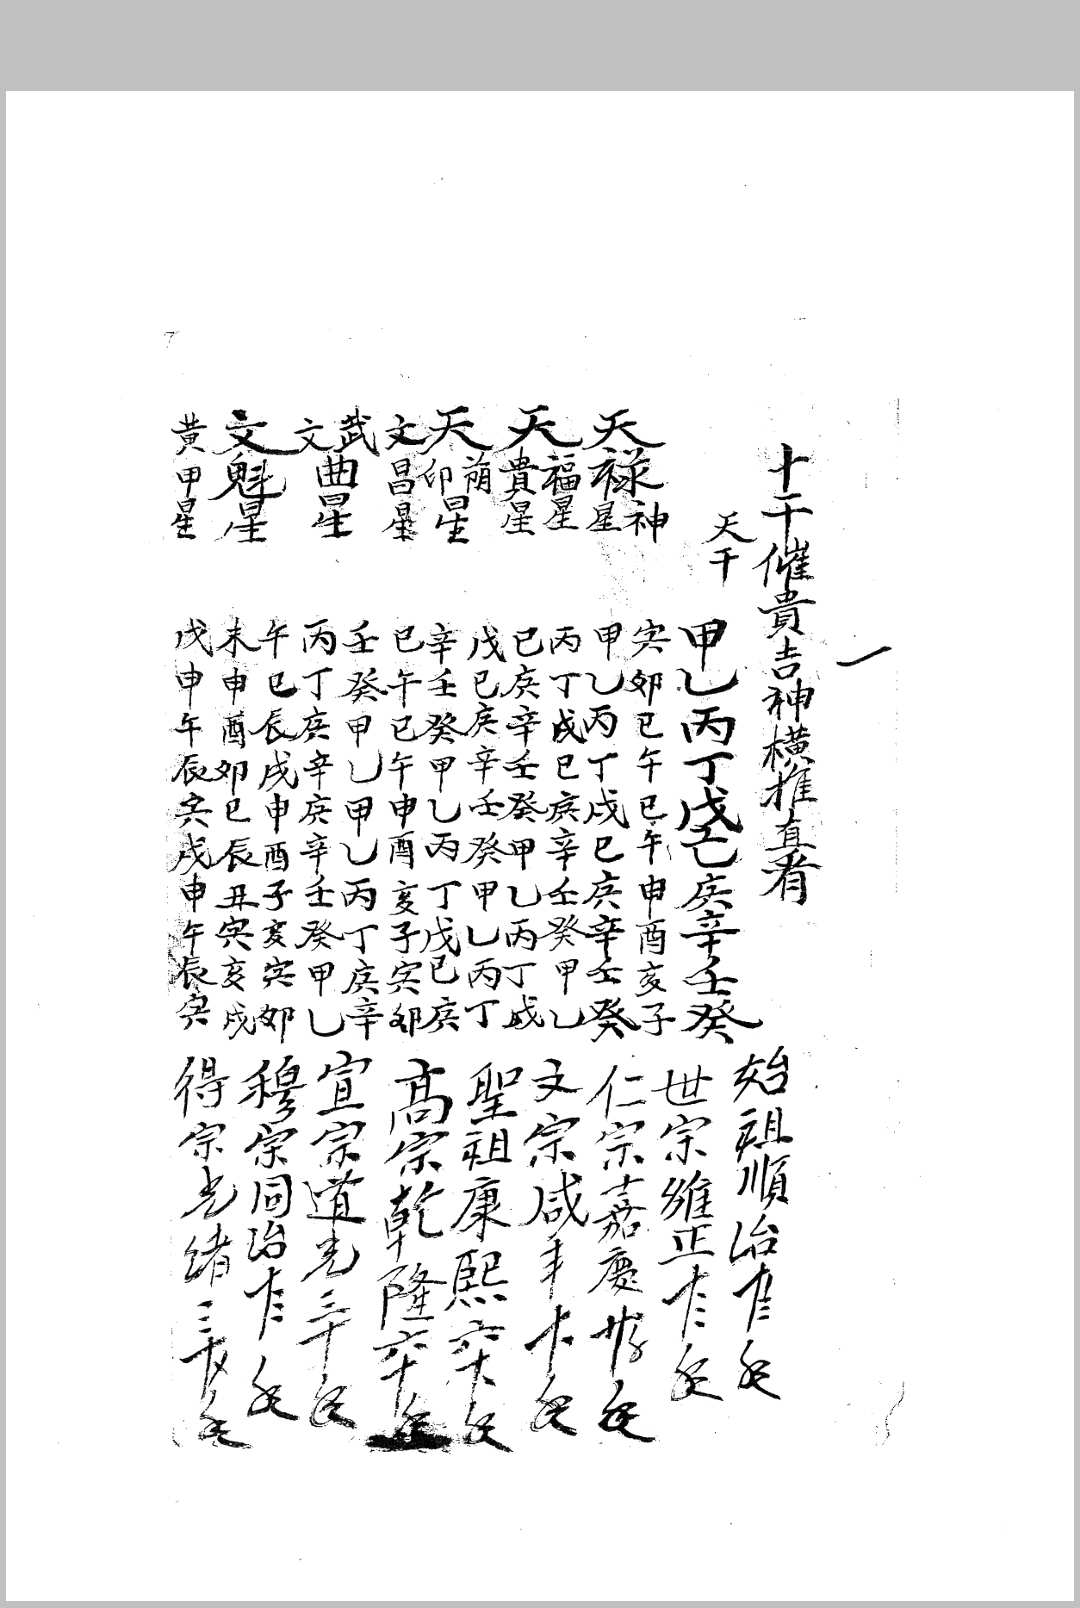 一
十干催貴吉神横推直看
天干
甲乙丙丁戊己庚辛壬癸
天祿神
寅卯巳午巳午申酉亥子
祿星
甲乙丙丁戊己庚辛壬癸
天福星
丙丁戊己庚辛壬癸甲乙
貴星
己庚辛壬癸甲乙丙丁戊
天蔭星
戊己庚辛壬癸甲乙丙丁
印
辛壬癸甲乙丙丁戊己庚
文昌星
巳午巳午申酉亥子寅卯
武曲星
壬癸甲乙甲乙丙丁庚辛
文
丙丁庚辛庚辛壬癸甲乙
文魁星
午巳辰戌申酉子亥寅卯
未申酉卯巳辰丑寅亥戌
黄甲星
戌申午辰寅戌申午辰寅
始祖順治年
世宗雍正十三年
仁宗嘉慶廿年
文宗咸丰十年
聖祖康熙六十年
高宗乾隆六十年
宣宗道光三十年
穆宗同治十三年
得宗光緒三十年